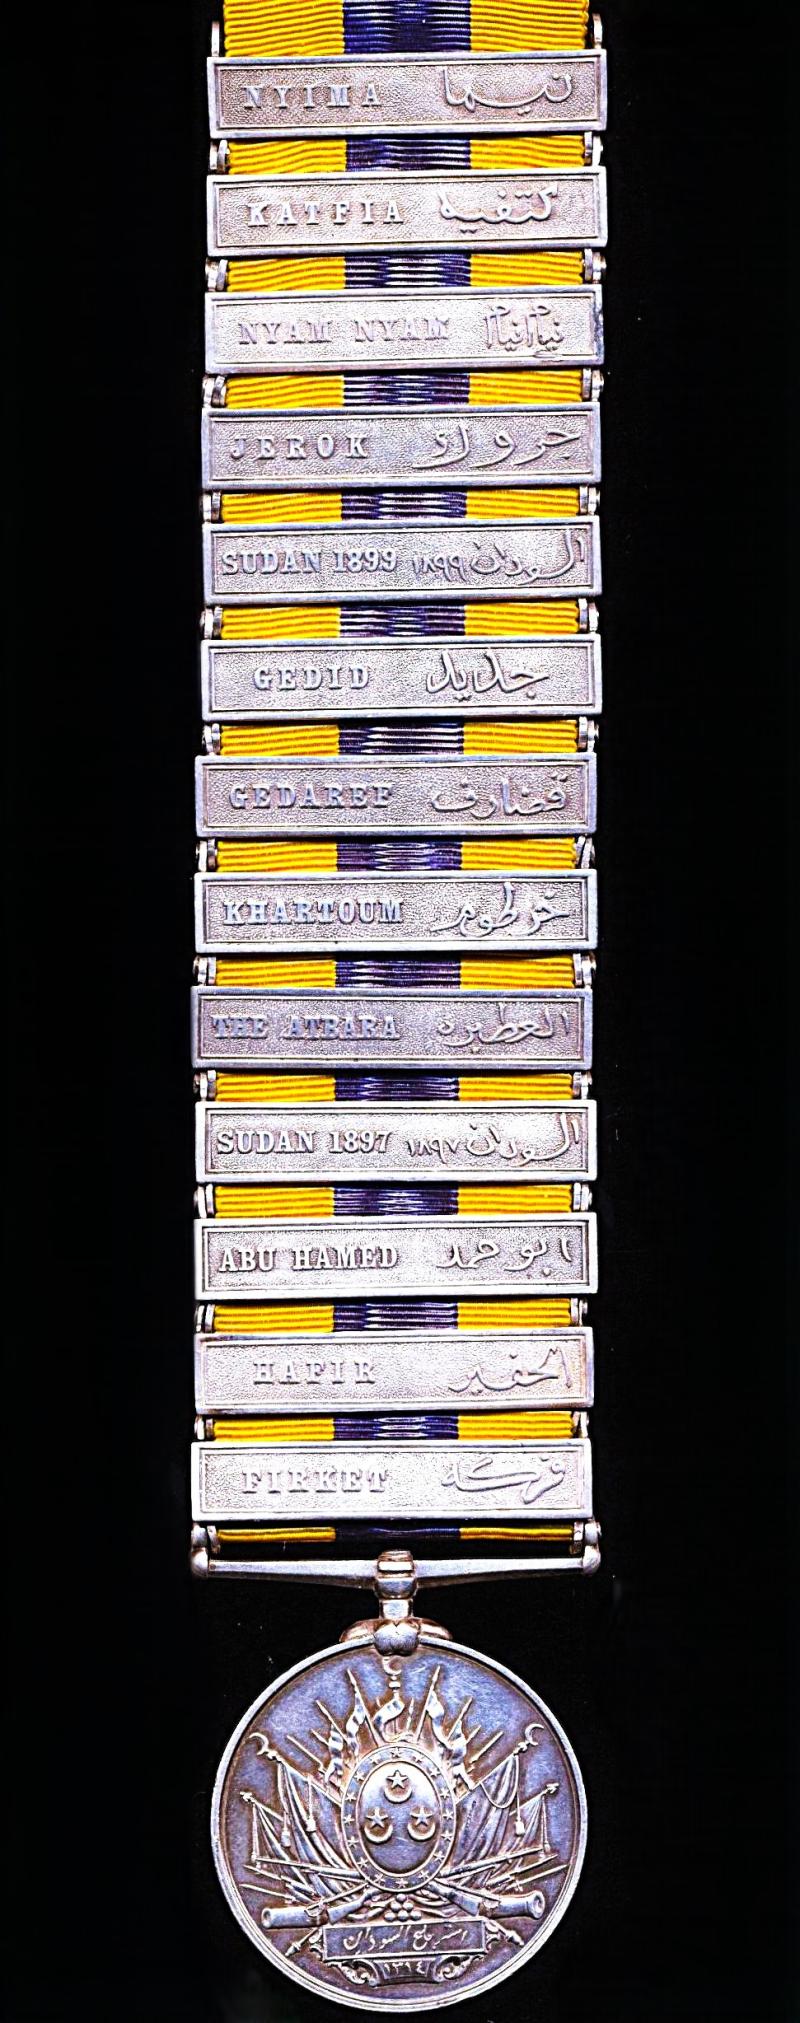 NYIMA نيما
KATFIA كتفيه
NYAM NYAM نيام نيام
JEROK جروك
SUDAN 1899 السودان ١٨٩٩
GEDID جديد
GEDAREF قضارف
KHARTOUM خرطوم
THE ATBARA العطبره
SUDAN 1897 السودان ١٨٩٧
ABU HAMED ابو حمد
HAFIR الحفير
FIRKET فركه
استرجاع السودان
١٣١٤